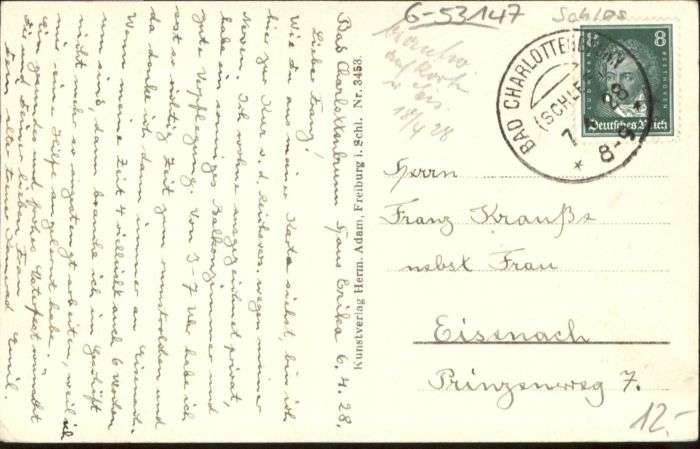 Bad Charlottenbrunn Haus Erika 6.4.28.
Lieber Franz!
Wie du aus meiner Karte siehst, bin ich
hier zur Kur v. d. Reichsver. wegen meiner
Nerven. Ich wohne ausgezeichnet privat,
habe ein sonniges Balkonzimmer und
gute Verpflegung. Von 3-7 Uhr habe ich
so richtig Zeit zum
da denke ich dann immer an Eisenach.
Wenn meine Zeit 4 vielleicht auch 6 Werden
um sind, dann brauche ich im Geschäft
nicht mehr so angestrengt arbeiten, weil ich
mir eine Hilfe angelernt habe.
Ein gesundes und frohes Osterfest wünscht
Dir und deiner lieben Frau
Dein alter treuer Emil.
Kunstverlag Herm. Adam, Freiburg i. Schl. Nr. 3453.
6-53147
Schles
auf Karte
18/4 28
8
Deutsches Reich
BAD CHARLOTTENBRUNN
(SCHLESIEN)
7.4.28
8-9
Herrn
Franz Krauße
nebst Frau
Eisenach
Prinzenweg 7.
12.-